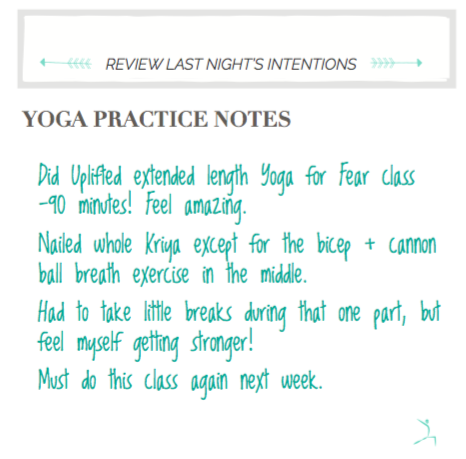 REVIEW LAST NIGHT'S INTENTIONS
YOGA PRACTICE NOTES
Did Uplifted extended length Yoga for Fear class
-90 minutes! Feel amazing.
Nailed whole Kriya except for the bicep + cannon
ball breath exercise in the middle.
Had to take little breaks during that one part, but
feel myself getting stronger!
Must do this class again next week.